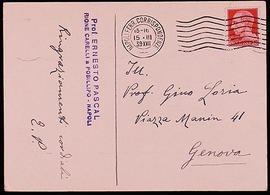 Prof. ERNESTO PASCAL
RIONE CARELLI A POSILLIPO - NAPOLI
Ringraziamenti cordiali
E. P.
NAPOLI FERR. CORRISPONDENZE
15 - III
39 XVII
Ill.
Prof. Gino Loria
Piazza Manin 41
Genova